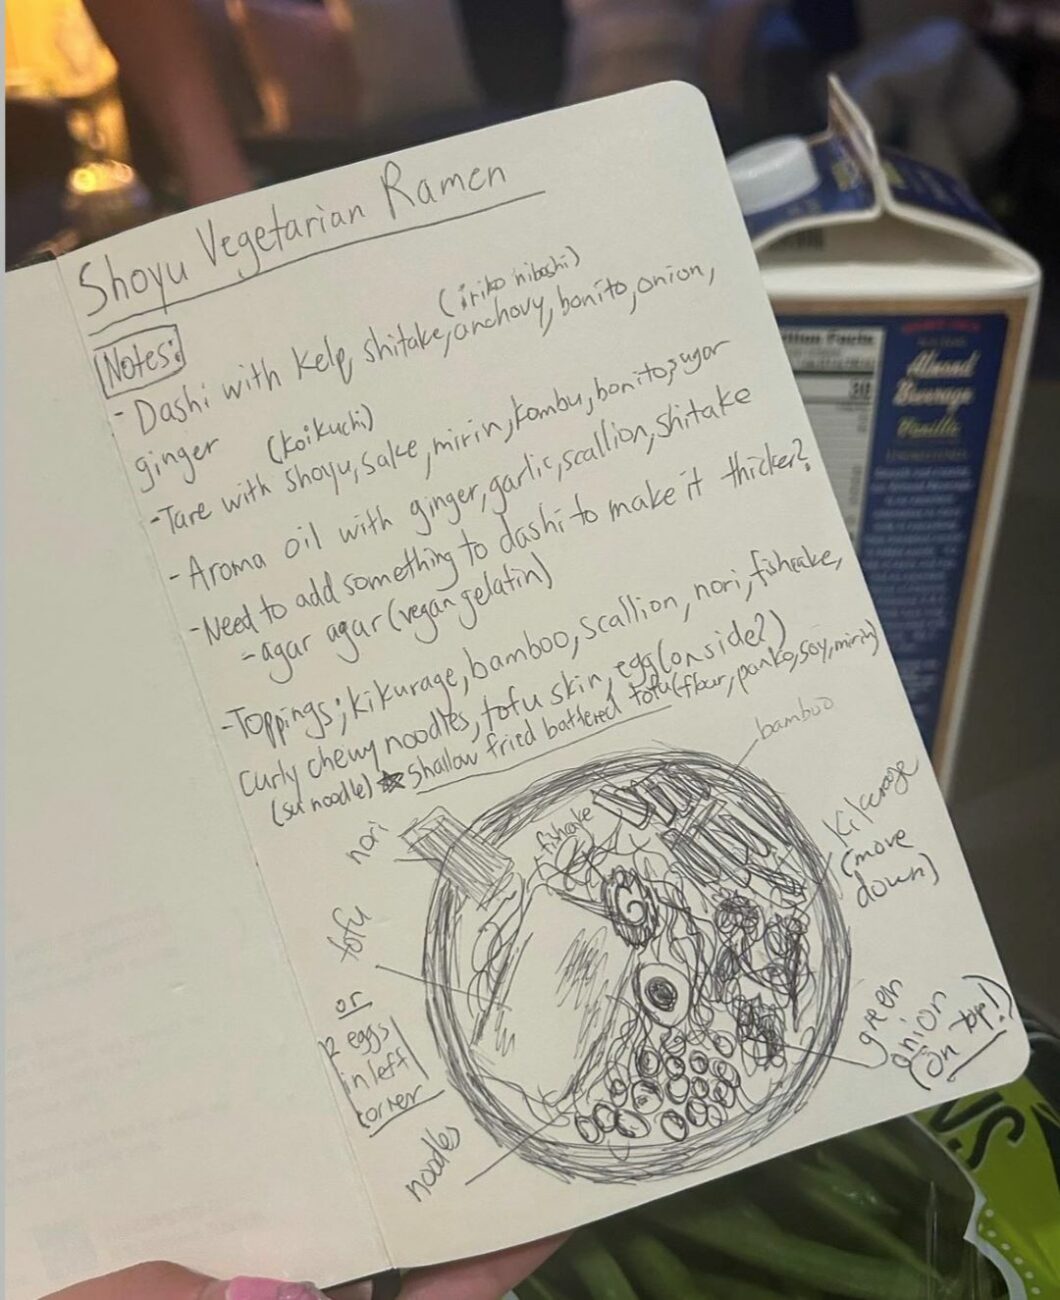 Shoyu Vegetarian Ramen
Notes:
(iriko niboshi)
- Dashi with kelp, shitake, anchovy, bonito, onion,
ginger
(koikuchi)
- Tare with shoyu, sake, mirin, kombu, bonito, sugar
- Aroma oil with ginger, garlic, scallion, shitake
- Need to add something to dashi to make it thicker?
- agar agar (vegan gelatin)
- Toppings; kikurage, bamboo, scallion, nori, fishcake,
curly chewy noodles, tofu skin, egg (on side?)
(su noodle) ★ Shallow fried battered tofu (flour, panko, soy, mirin)
bamboo
nori
fishcake
kikurage
(move
down)
tofu
or
2 eggs
in left
corner
green
onion
(on top!)
noodles
Nutrition Facts
Almond
Beverage
Vanilla